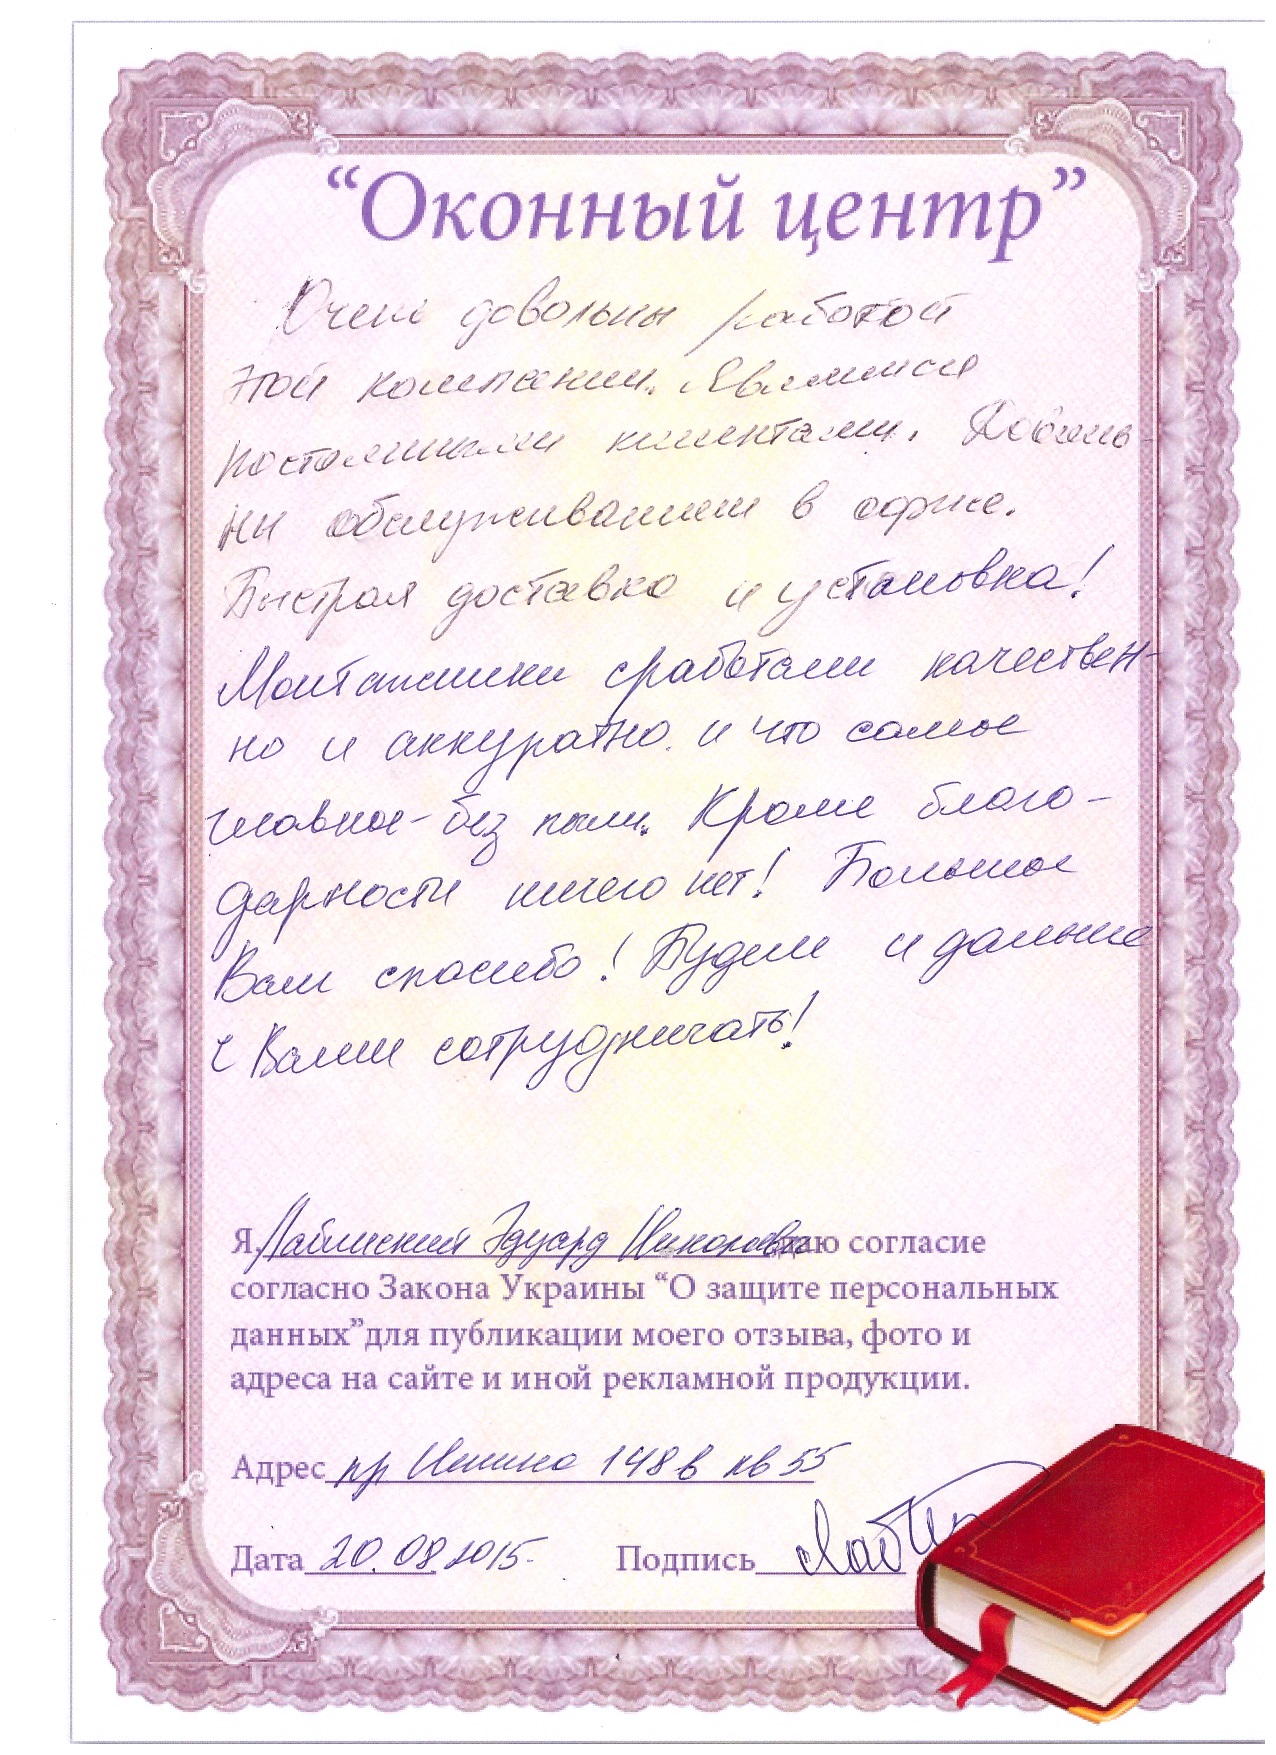 “Оконный центр”
Очень довольны работой
этой компании. Являемся
постоянными клиентами. Доволь-
ны обслуживанием в офисе.
Быстрая доставка и установка!
Монтажники сработали качествен-
но и аккуратно. и что самое
главное - без пыли. Кроме благо-
дарности ничего нет! Большое
Вам спасибо! Будем и дальше
с Вами сотрудничать!
Я, Лаблинский Эдуард даю согласие
согласно Закона Украины “О защите персональных
данных”для публикации моего отзыва, фото и
адреса на сайте и иной рекламной продукции.
Адрес пр Ленина 148в кв 55
Дата 20.08.2015. Подпись